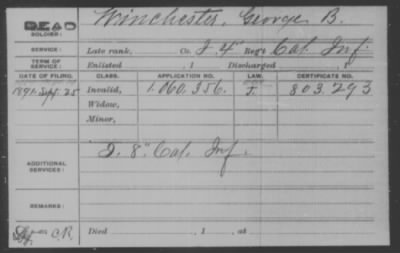 DEAD Winchester, George B.
SOLDIER:
SERVICE: Late rank, Co. I 4" Reg't Cal. Inf.
TERM OF SERVICE: Enlisted , 1 Discharged , 1
DATE OF FILING. CLASS. APPLICATION NO. LAW. CERTIFICATE NO.
1891. Sept. 25 Invalid, 1.060.356. J. 803.293
Widow,
Minor,
ADDITIONAL SERVICES: I. 8" Cal. Inf.
REMARKS:
C.R. Died , 1 , at